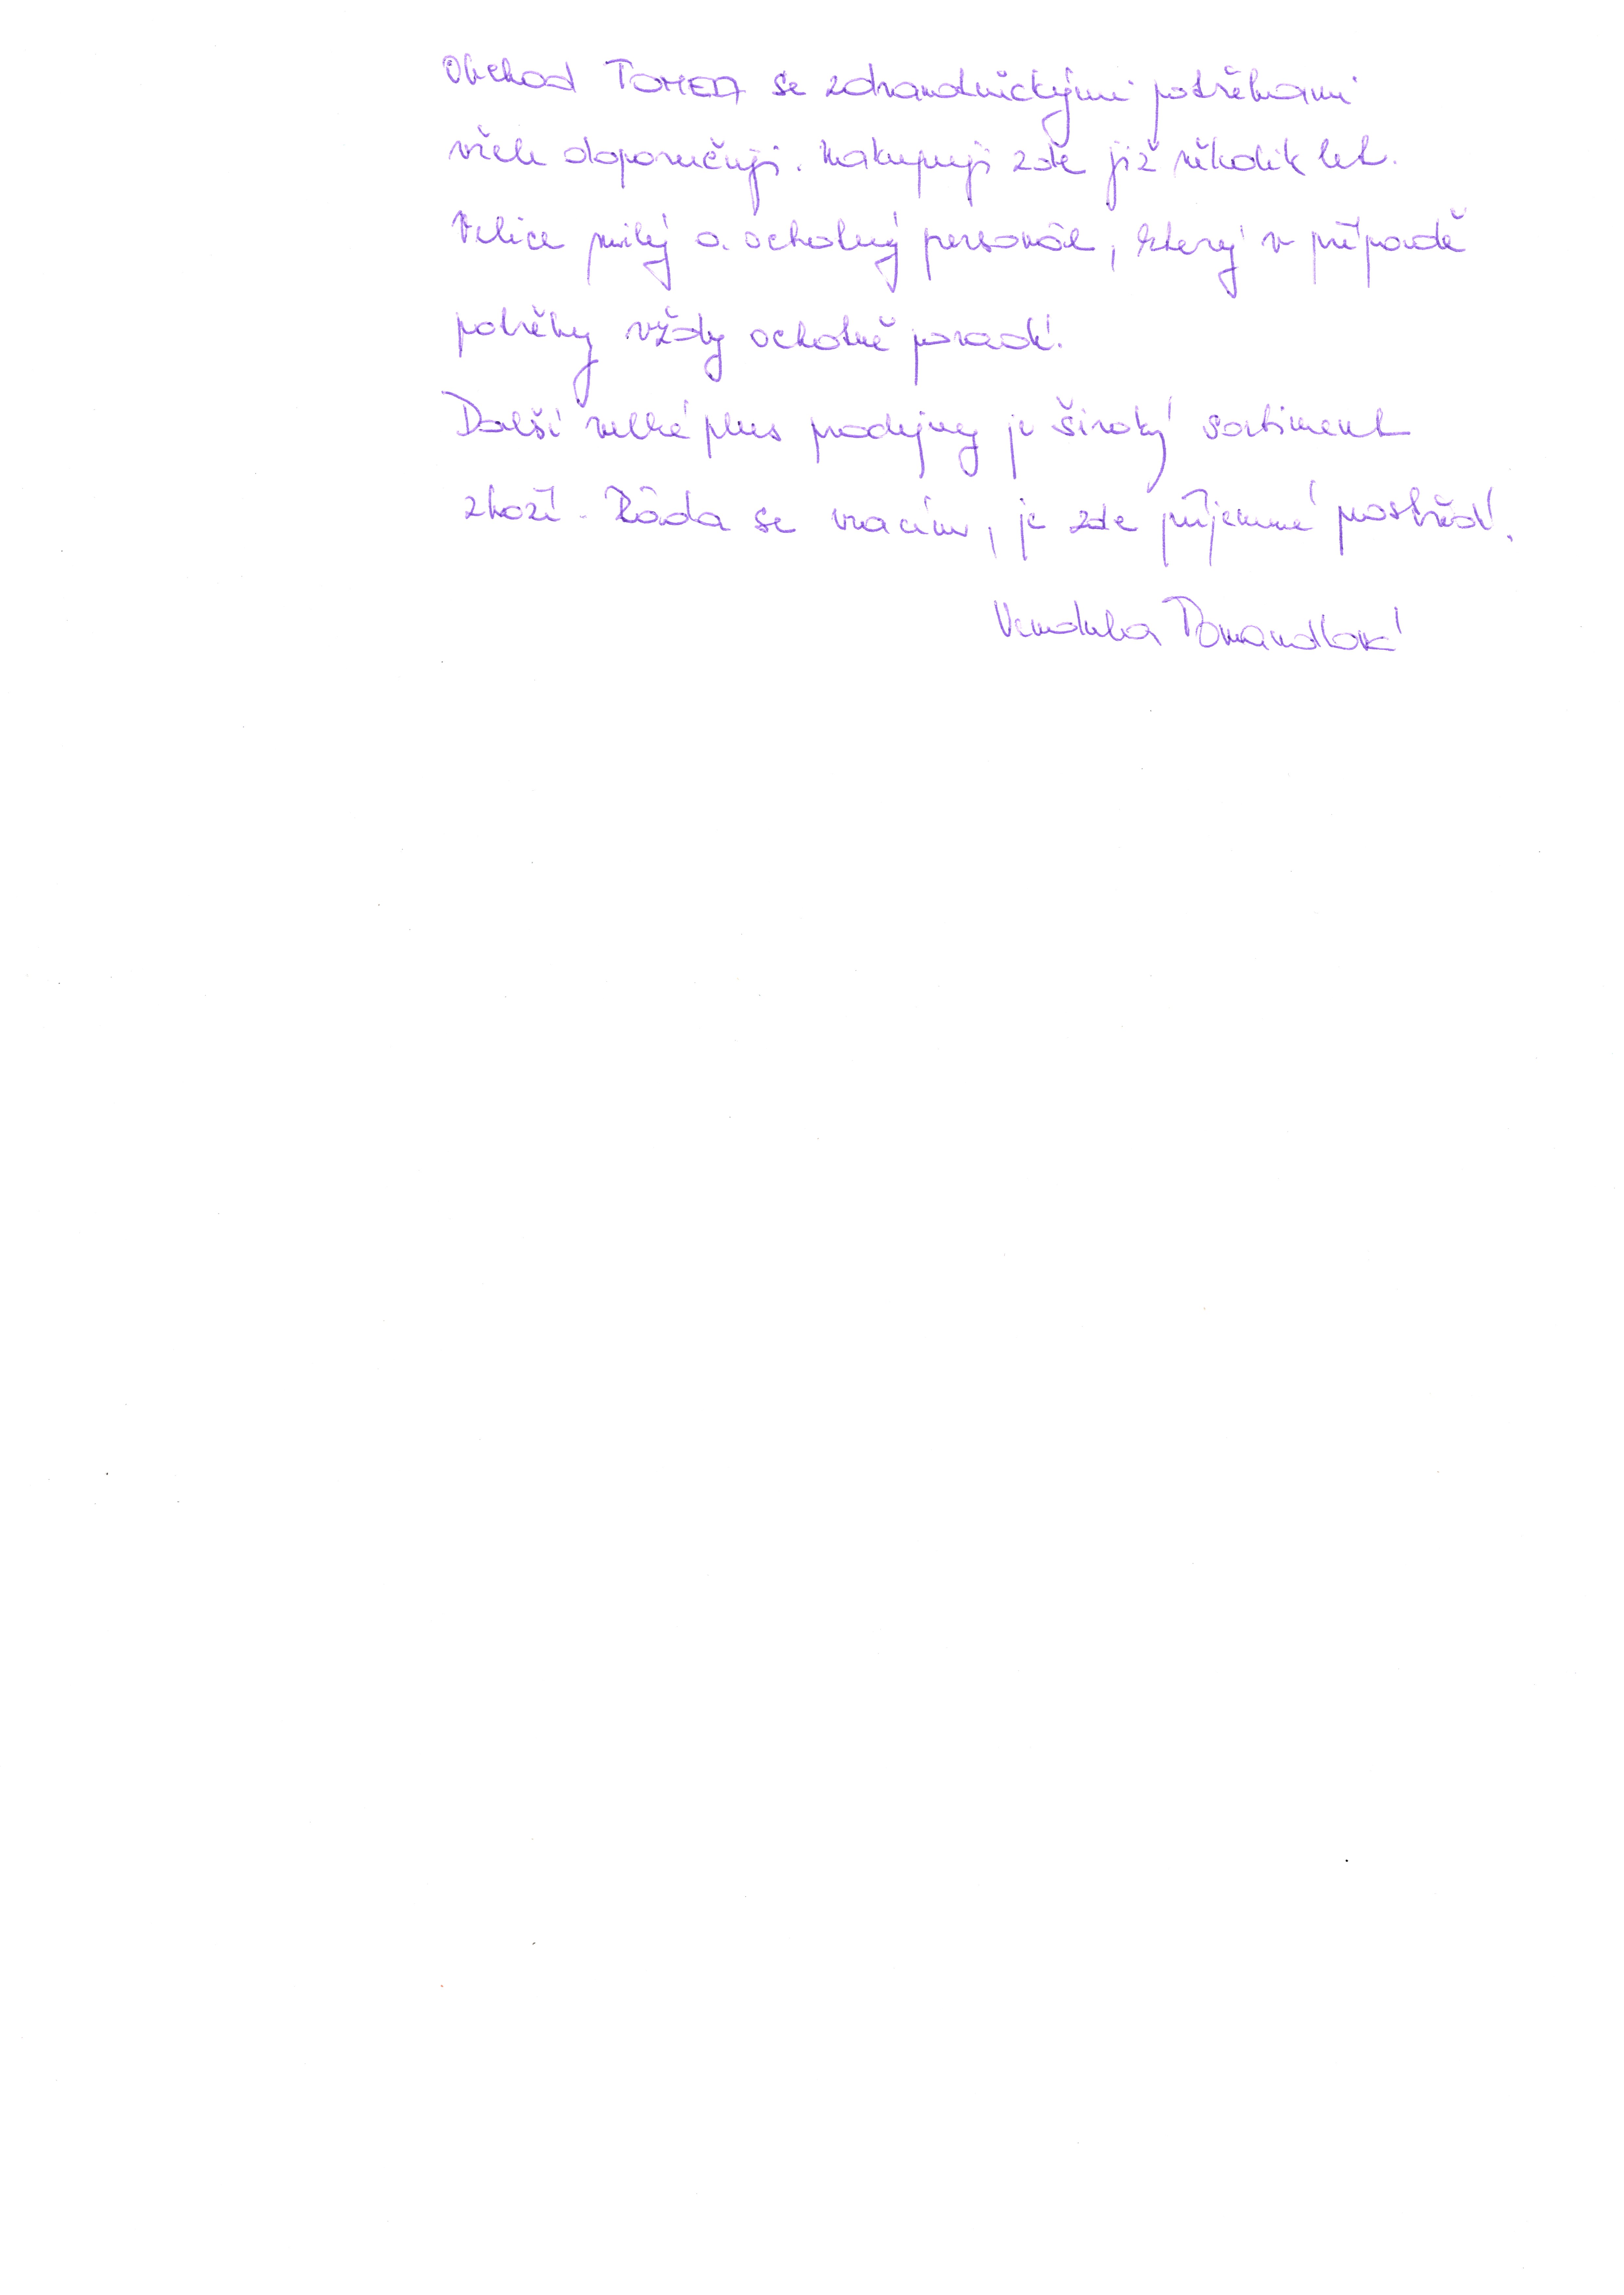 Obchod TOMEDA se zdravotnickými potřebami
vřele doporučuji. Nakupuji zde již několik let.
Velice milý a ochotný personál, který v případě
potřeby vždy ochotně poradí.
Další velké plus prodejny je široký sortiment
zboží. Ráda se vracím, je zde příjemné prostředí.
Vendulka